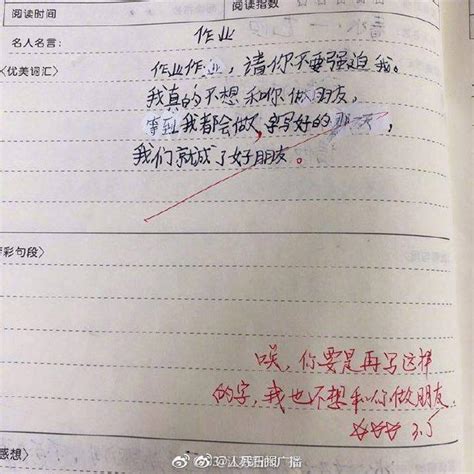 阅读时间
阅读指数
名人名言:
作业
〈优美词汇〉
作业作业，请你不要强迫我。
我真的不想和你做朋友，
等到我都会做，字写好的那天，
我们就成了好朋友。
彩句段〉
唉，你要是再写这样
的字，我也不想和你做朋友
3.5
感想〉
@人民日报广播